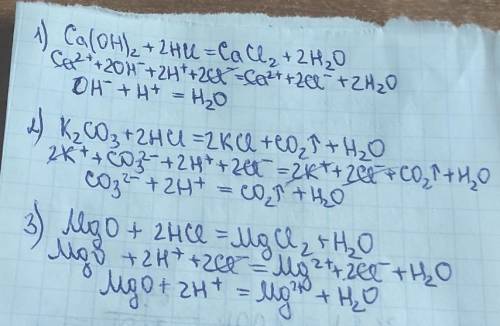 1) Ca(OH)₂ + 2HCl = CaCl₂ + 2H₂O
Ca²⁺ + 2OH⁻ + 2H⁺ + 2Cl⁻ = Ca²⁺ + 2Cl⁻ + 2H₂O
OH⁻ + H⁺ = H₂O
2) K₂CO₃ + 2HCl = 2KCl + CO₂↑ + H₂O
2K⁺ + CO₃²⁻ + 2H⁺ + 2Cl⁻ = 2K⁺ + 2Cl⁻ + CO₂↑ + H₂O
CO₃²⁻ + 2H⁺ = CO₂↑ + H₂O
3) MgO + 2HCl = MgCl₂ + H₂O
MgO + 2H⁺ + 2Cl⁻ = Mg²⁺ + 2Cl⁻ + H₂O
MgO + 2H⁺ = Mg²⁺ + H₂O